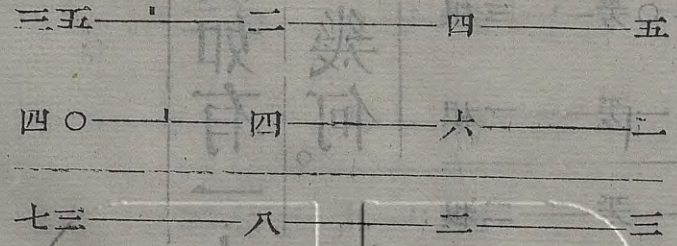 三五——二——四——五
四〇——四——六——二
七三——八——二——三